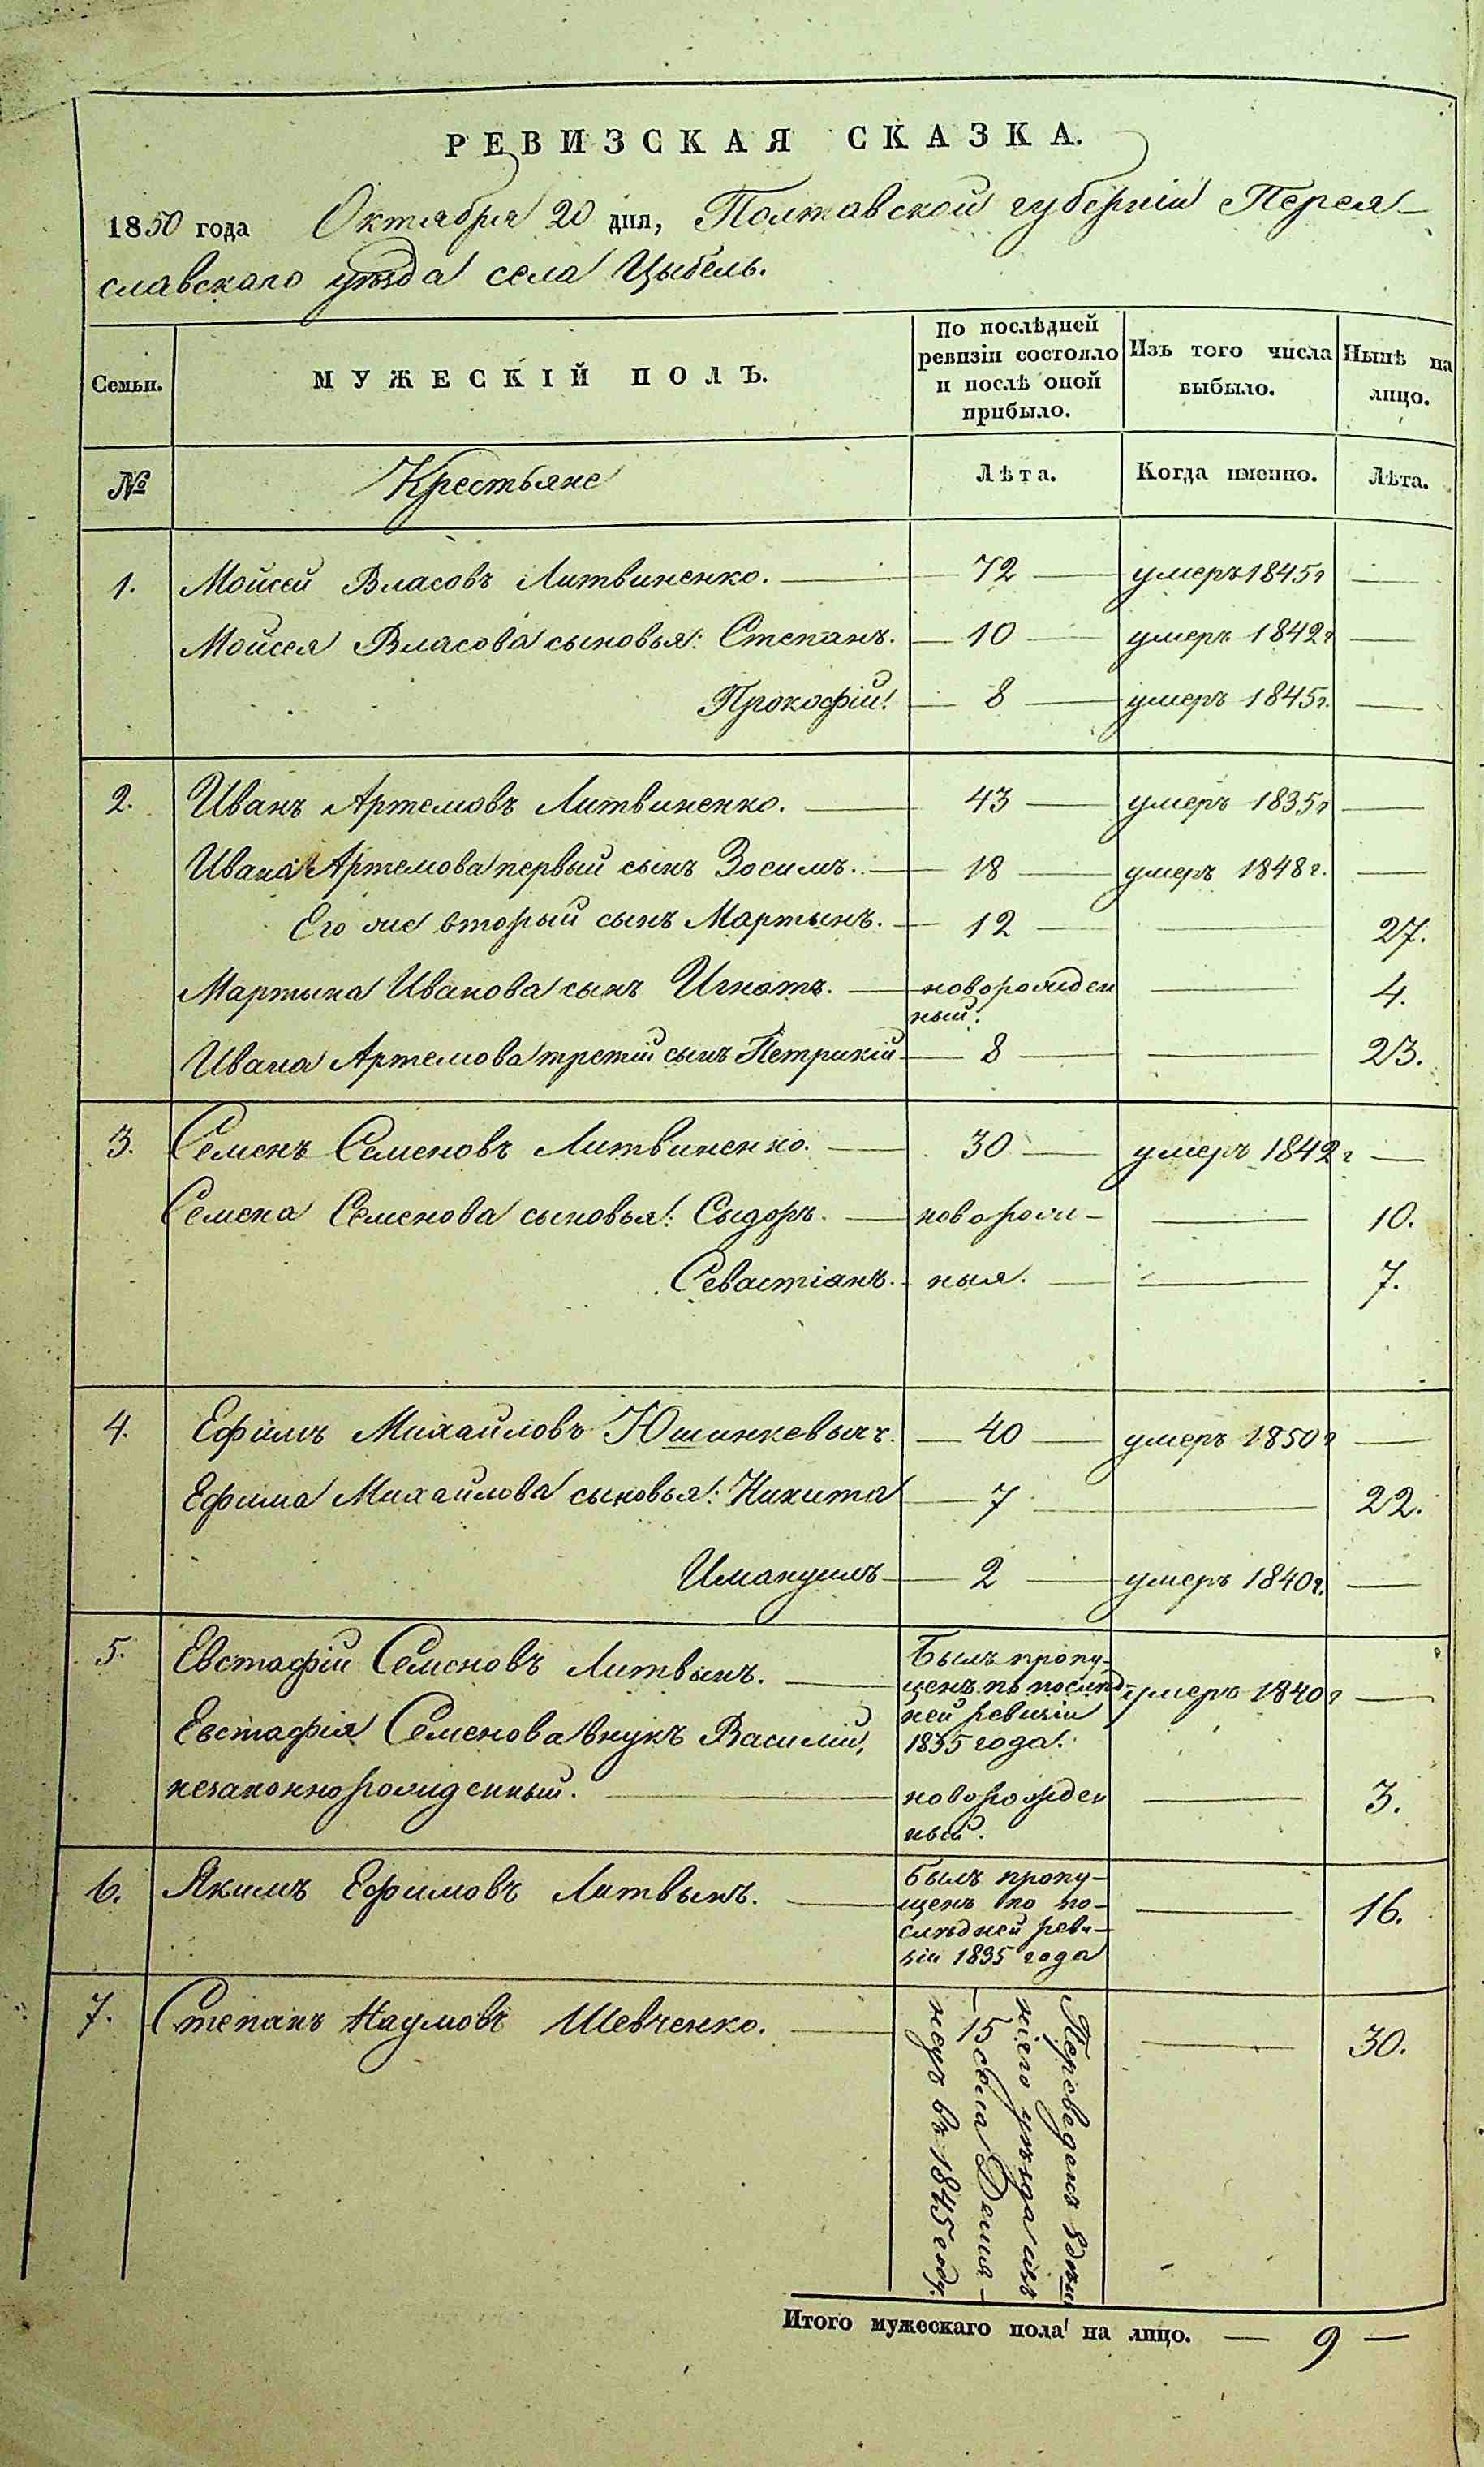 РЕВИЗСКАЯ СКАЗКА.
1850 года Октября 20 дня, Полтавской губерніи Перея-
славскаго уѣзда села Цыбель.
Семьи. МУЖЕСКІЙ ПОЛЪ. По послѣдней ревизіи состояло и послѣ оной прибыло. Изъ того числа выбыло. Нынѣ на лицо.
№ Крестьяне Лѣта. Когда именно. Лѣта.
1. Моисей Власовъ Литвиненко. — 72 — умеръ 1845г —
Моисея Власова сыновья: Степанъ. — 10 — умеръ 1842г —
Прокофій. — 8 — умеръ 1845г. —
2. Иванъ Артемовъ Литвиненко. — 43 — умеръ 1835г —
Ивана Артемова первый сынъ Зосимъ. — 18 — умеръ 1848г. —
Его же вторый сынъ Мартынъ. — 12 — — 27.
Мартына Иванова сынъ Игнатъ. — новорожден
ный. — 4.
Ивана Артемова третій сынъ Петрикій — 8 — — 23.
3. Семенъ Семеновъ Литвиненко. — 30 — умеръ 1842г —
Семена Семенова сыновья: Сыдоръ. — оворож- — 10.
Севастіанъ. — ныя. — — 7.
4. Ефимъ Михайловъ Юшинкевычъ. — 40 — умеръ 1850г —
Ефима Михайлова сыновья: Никита — 7 — 22.
Имануилъ — 2 — умеръ 1840г. —
5. Евстафій Семеновъ Литвынъ. — Былъ пропу-
щенъ по послѣд-
ней ревизіи
1835 года. умеръ 1840г —
Евстафія Семенова внукъ Василій,
незаконнорожденный. — новорожден
ный. — 3.
6. Якимъ Ефимовъ Литвынъ. — Былъ пропу-
щенъ по по-
слѣдней реви-
зіи 1835 года — 16.
7. Степанъ Наумовъ Шевченко. — Переведенъ здѣш
няго уѣзда изъ
— 15 села Демя-
нецъ въ 1845 году. — 30.
Итого мужескаго пола на лицо. — 9 —